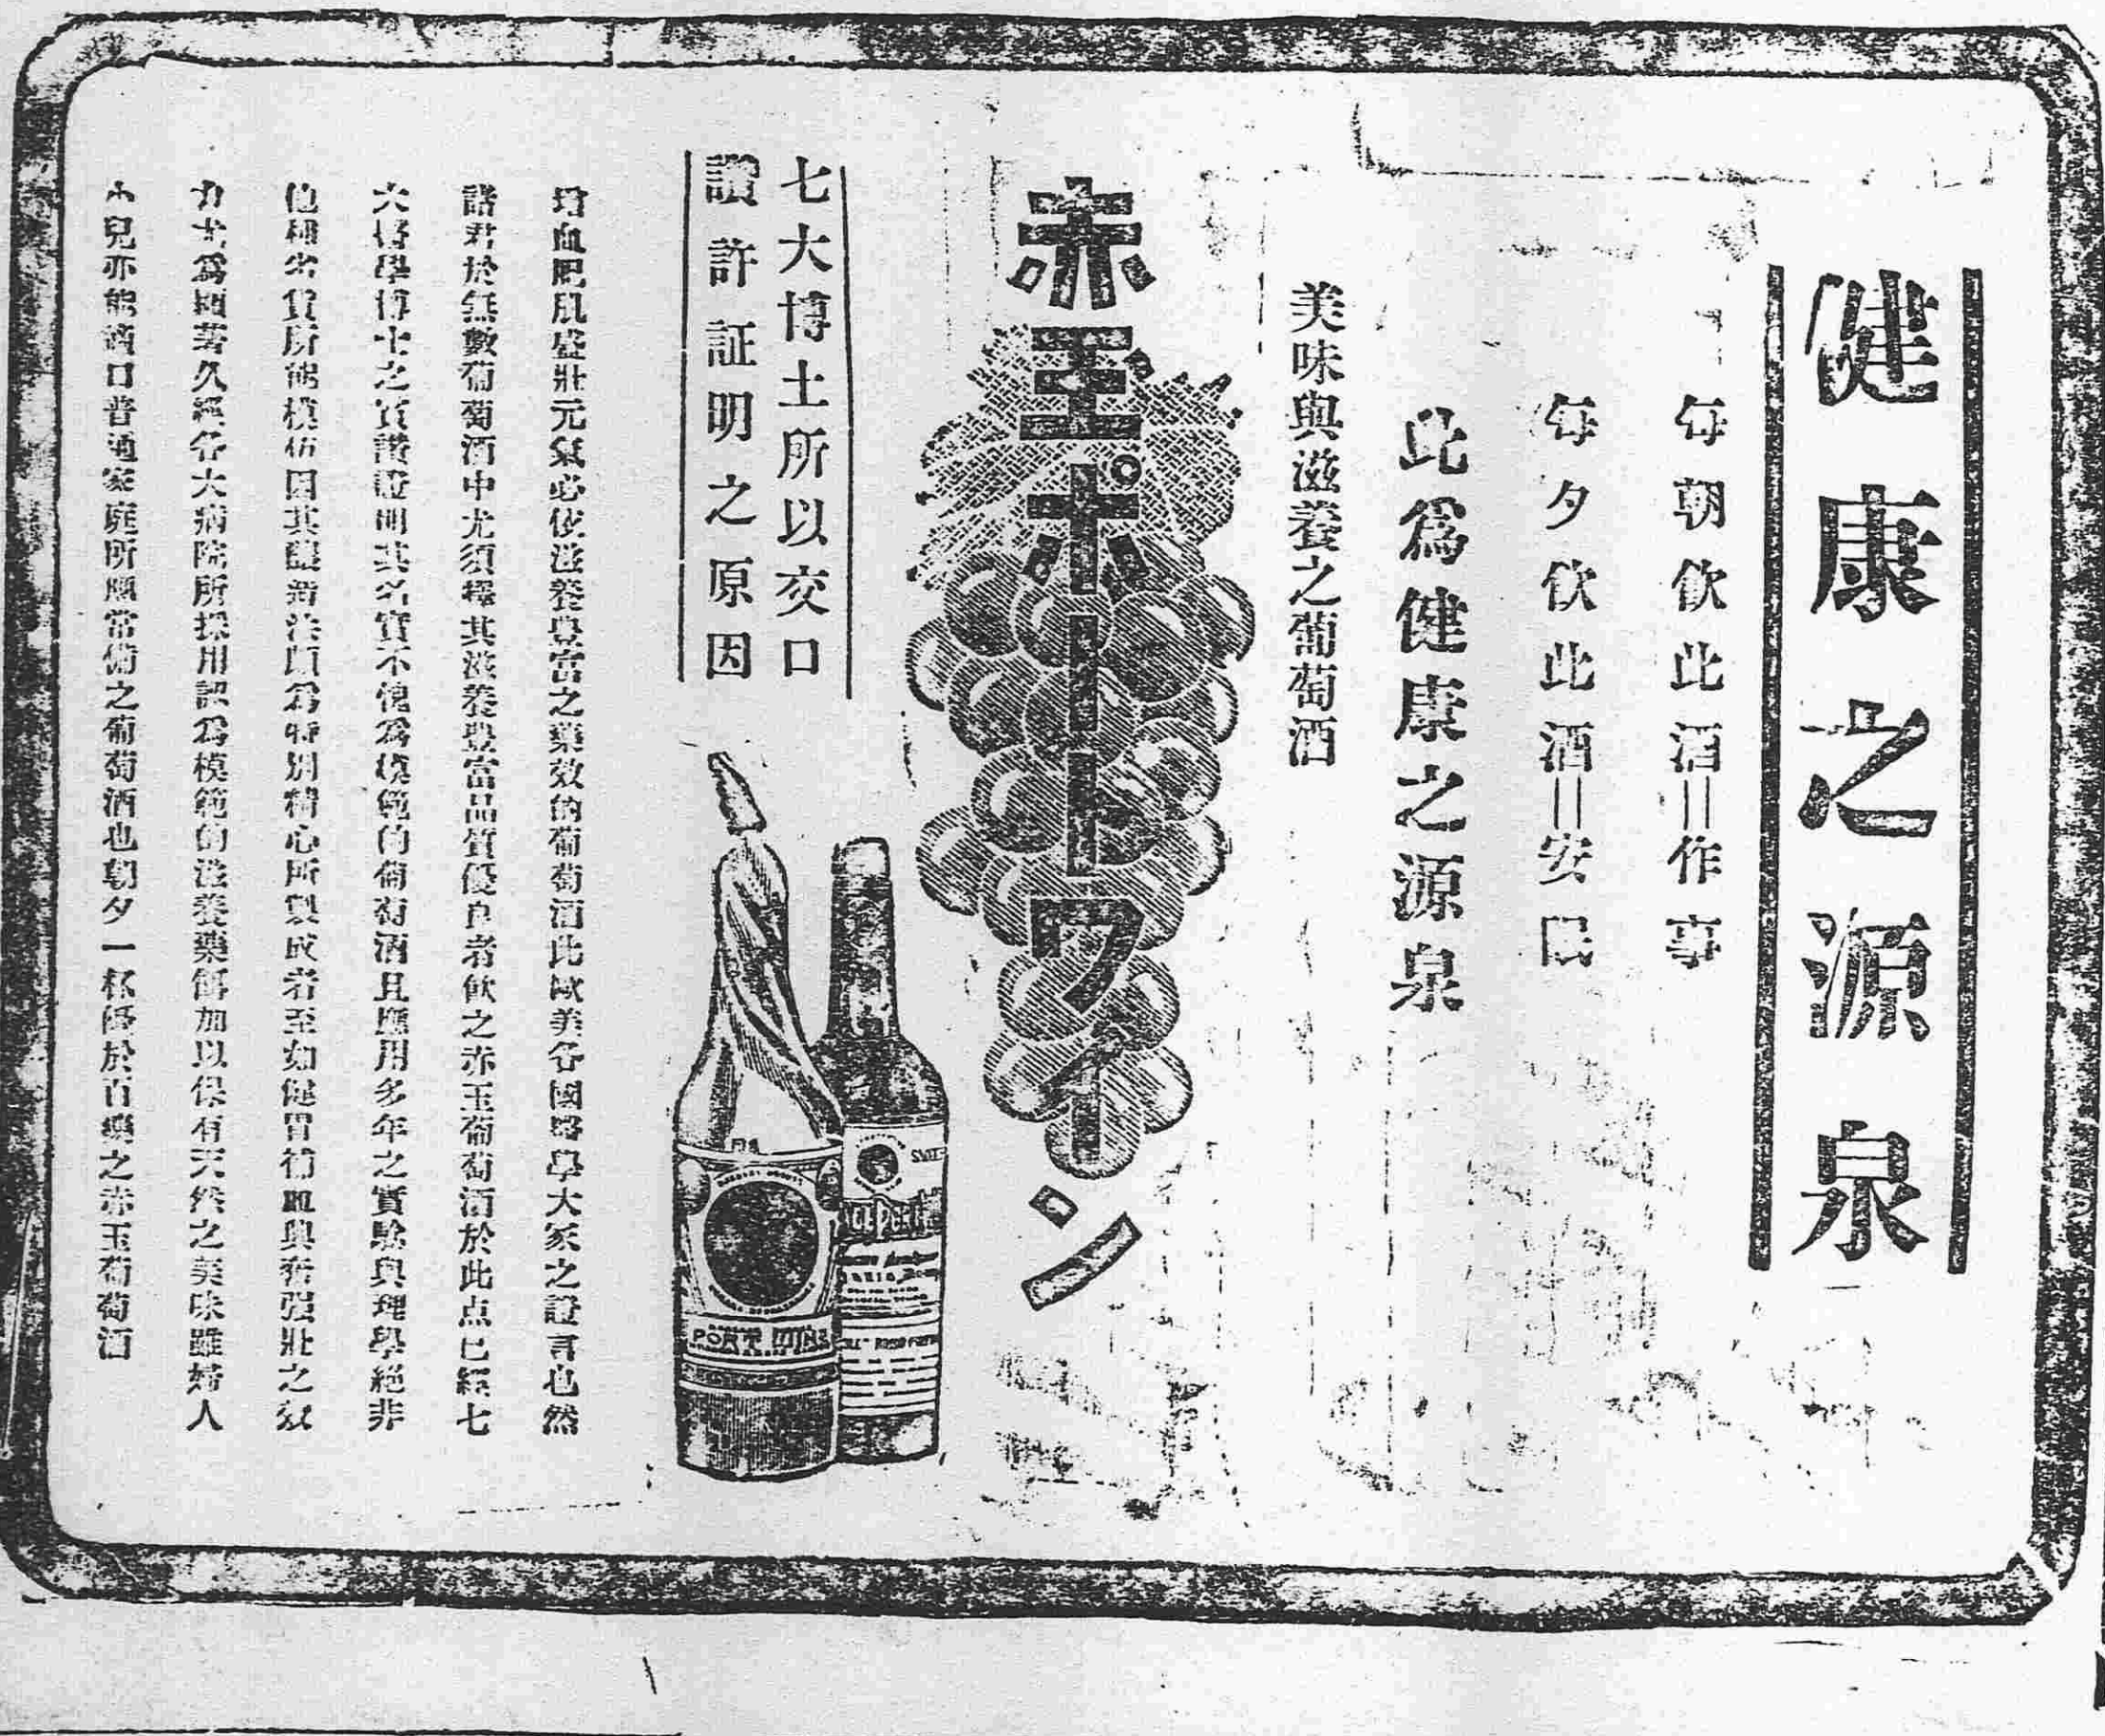 健康之源泉
每朝飲此酒＝作事
每夕飲此酒＝安眠
此爲健康之源泉
美味與滋養之葡萄酒
赤玉ポートワイン
七大博士所以交口
讚許証明之原因
增血肥肌盛壯元氣必依滋養豊富之藥效的葡萄酒此歐美各國醫學大家之證言也然
諸君於無數葡萄酒中尤須擇其滋養豊富品質優良者飲之赤玉葡萄酒於此点已經七
大醫學博士之賞讚證明其名實不愧爲模範的葡萄酒且應用多年之實驗與理學絕非
他種劣貨所能模仿因其釀造法頗爲特別精心所製成者至如健胃補血與奮强壯之效
力尤爲顯著久經各大病院所採用認爲模範的滋養藥餌加以保有天然之美味雖婦人
小兒亦能適口普通家庭所應常備之葡萄酒也朝夕一杯優於百藥之赤玉葡萄酒
PORT WINE